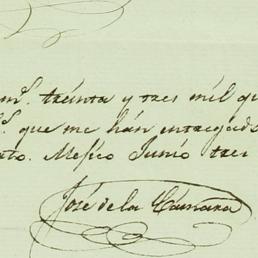 m.ˢ treinta y tres mil qu
s. que me han entregado
to. Mejico Junio tres
José de la Cámara